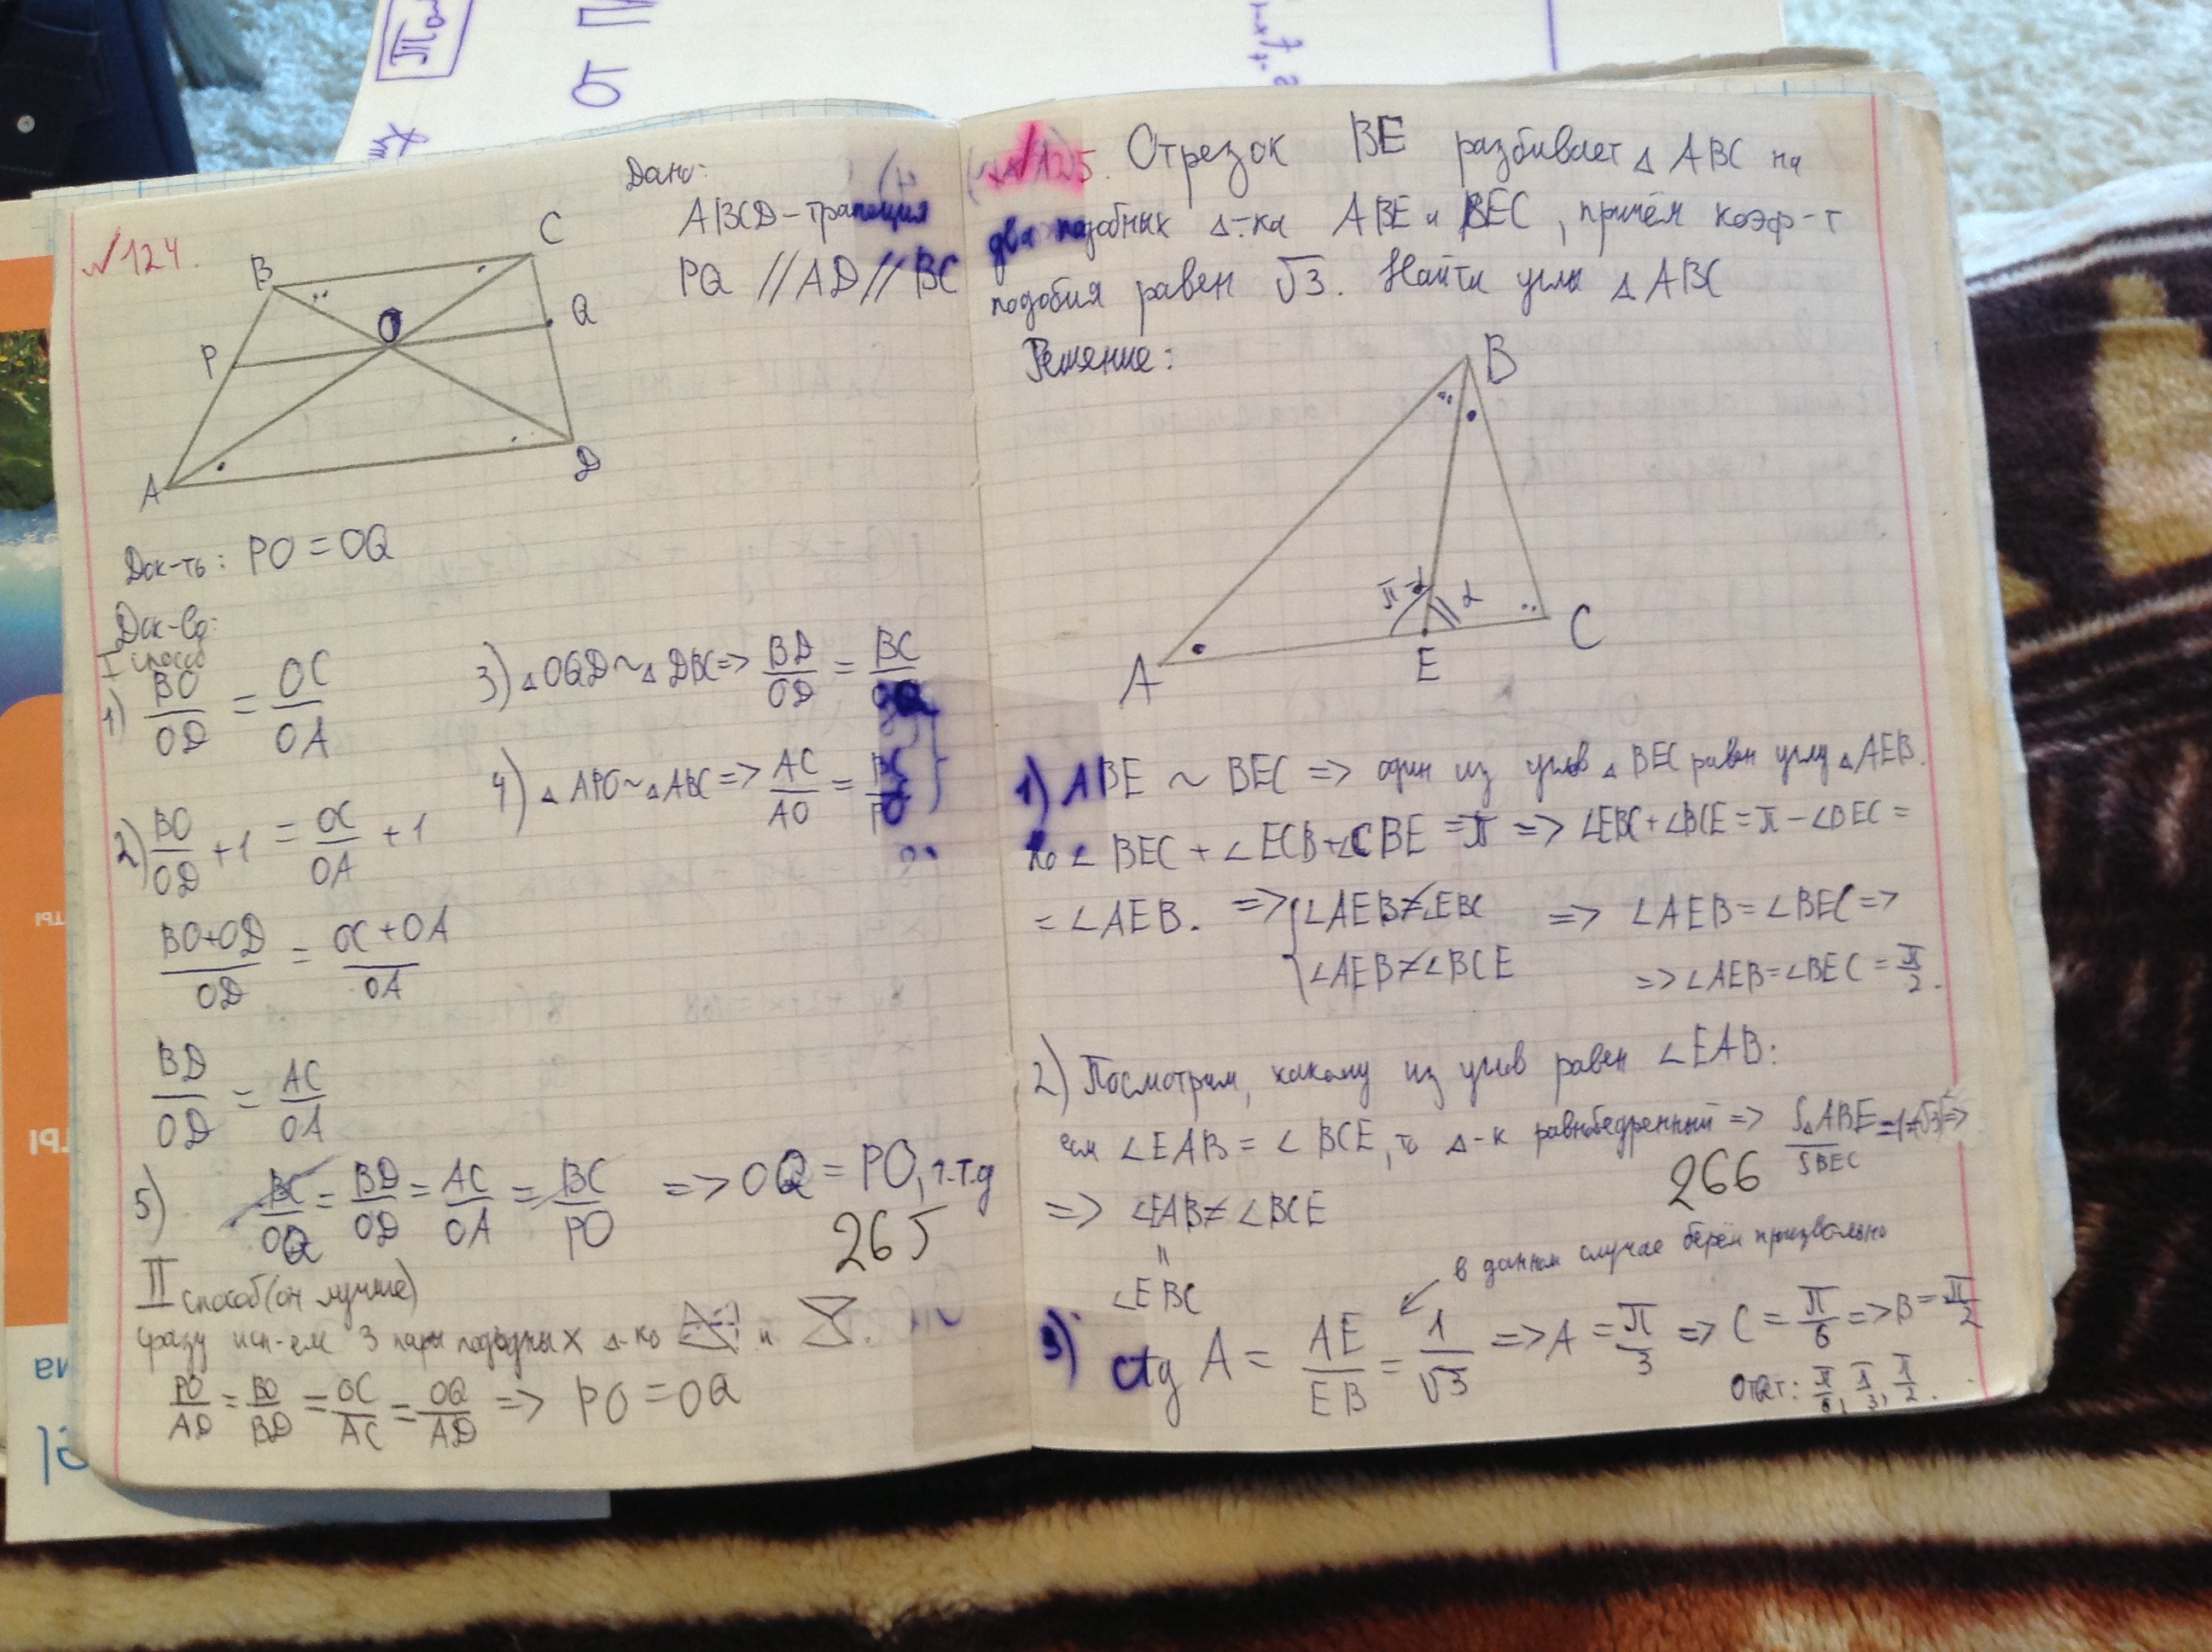 №124.
Дано:
ABCD – трапеция
PQ // AD // BC
B
C
P
O
Q
A
D
Док-ть: PO = OQ
Док-во:
I способ
1) BO/OD = OC/OA
2) BO/OD + 1 = OC/OA + 1
(BO+OD)/OD = (OC+OA)/OA
BD/OD = AC/OA
3) △OQD ~ △DBC => BD/OD = BC/OQ
4) △APO ~ △ABC => AC/AO = BC/PO
5) BC/OQ = BD/OD = AC/OA = BC/PO => OQ = PO, ч.т.д
265
II способ (он лучше)
Сразу исп-ем 3 пары подобных △-ков и
PO/AD = BO/BD = OC/AC = OQ/AD => PO = OQ
№125. Отрезок BE разбивает △ ABC на
два подобных △-ка ABE и BEC, причём коэф-т
подобия равен √3. Найти углы △ ABC
Решение:
B
π-α
α
A
E
C
1) ABE ~ BEC => один из углов △ BEC равен углу △ AEB.
но ∠ BEC + ∠ ECB + ∠CBE = π => ∠EBC + ∠BCE = π – ∠BEC =
= ∠AEB. => { ∠AEB ≠ ∠EBC => ∠AEB = ∠BEC =>
∠AEB ≠ ∠BCE => ∠AEB = ∠BEC = π/2.
2) Посмотрим, какому из углов равен ∠EAB:
если ∠EAB = ∠BCE, то △-к равнобедренный => S△ABE/SBEC = 1 ≠ √3 =>
266
=> ∠EAB ≠ ∠BCE
"
∠EBC
в данном случае берём произвольно
3) ctg A = AE/EB = 1/√3 => A = π/3 => C = π/6 => B = π/2
Ответ: π/6, π/3, π/2.